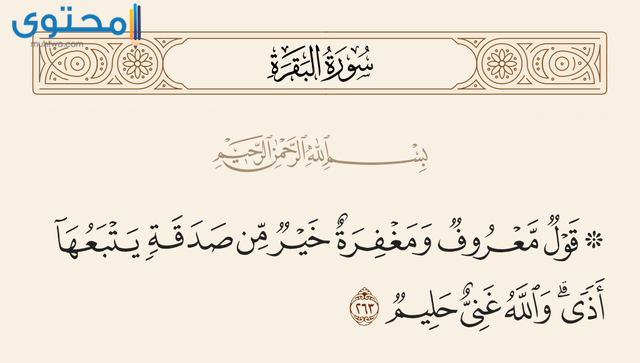 محتوى
muhtwa.com
سُورَةُ البَقَرَةِ
بِسْمِ ٱللَّهِ ٱلرَّحْمَٰنِ ٱلرَّحِيمِ
۞ قَوْلٌ مَّعْرُوفٌ وَمَغْفِرَةٌ خَيْرٌ مِّن صَدَقَةٍ يَتْبَعُهَآ
أَذًى ۗ وَٱللَّهُ غَنِىٌّ حَلِيمٌ ٢٦٣